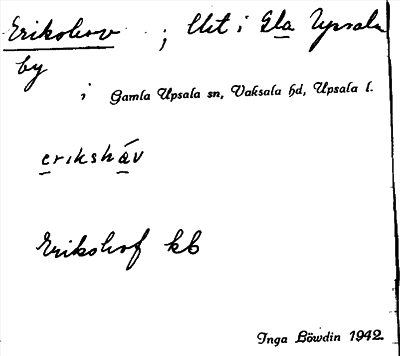 Erikshov ; llt i Gla Upsala
by
i Gamla Upsala sn, Vaksala hd, Upsala l.
eriksháv
Erikshof kb
Inga Löwdin 1942.